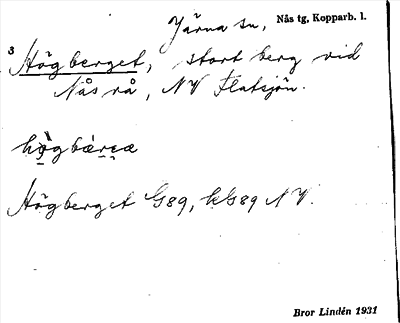 Järna sn, Nås tg, Kopparb. l.
3
Högberget, stort berg vid
Nås rå, NV Flatsjön.
Högberget G89, kG89 NV.
Bror Lindén 1931